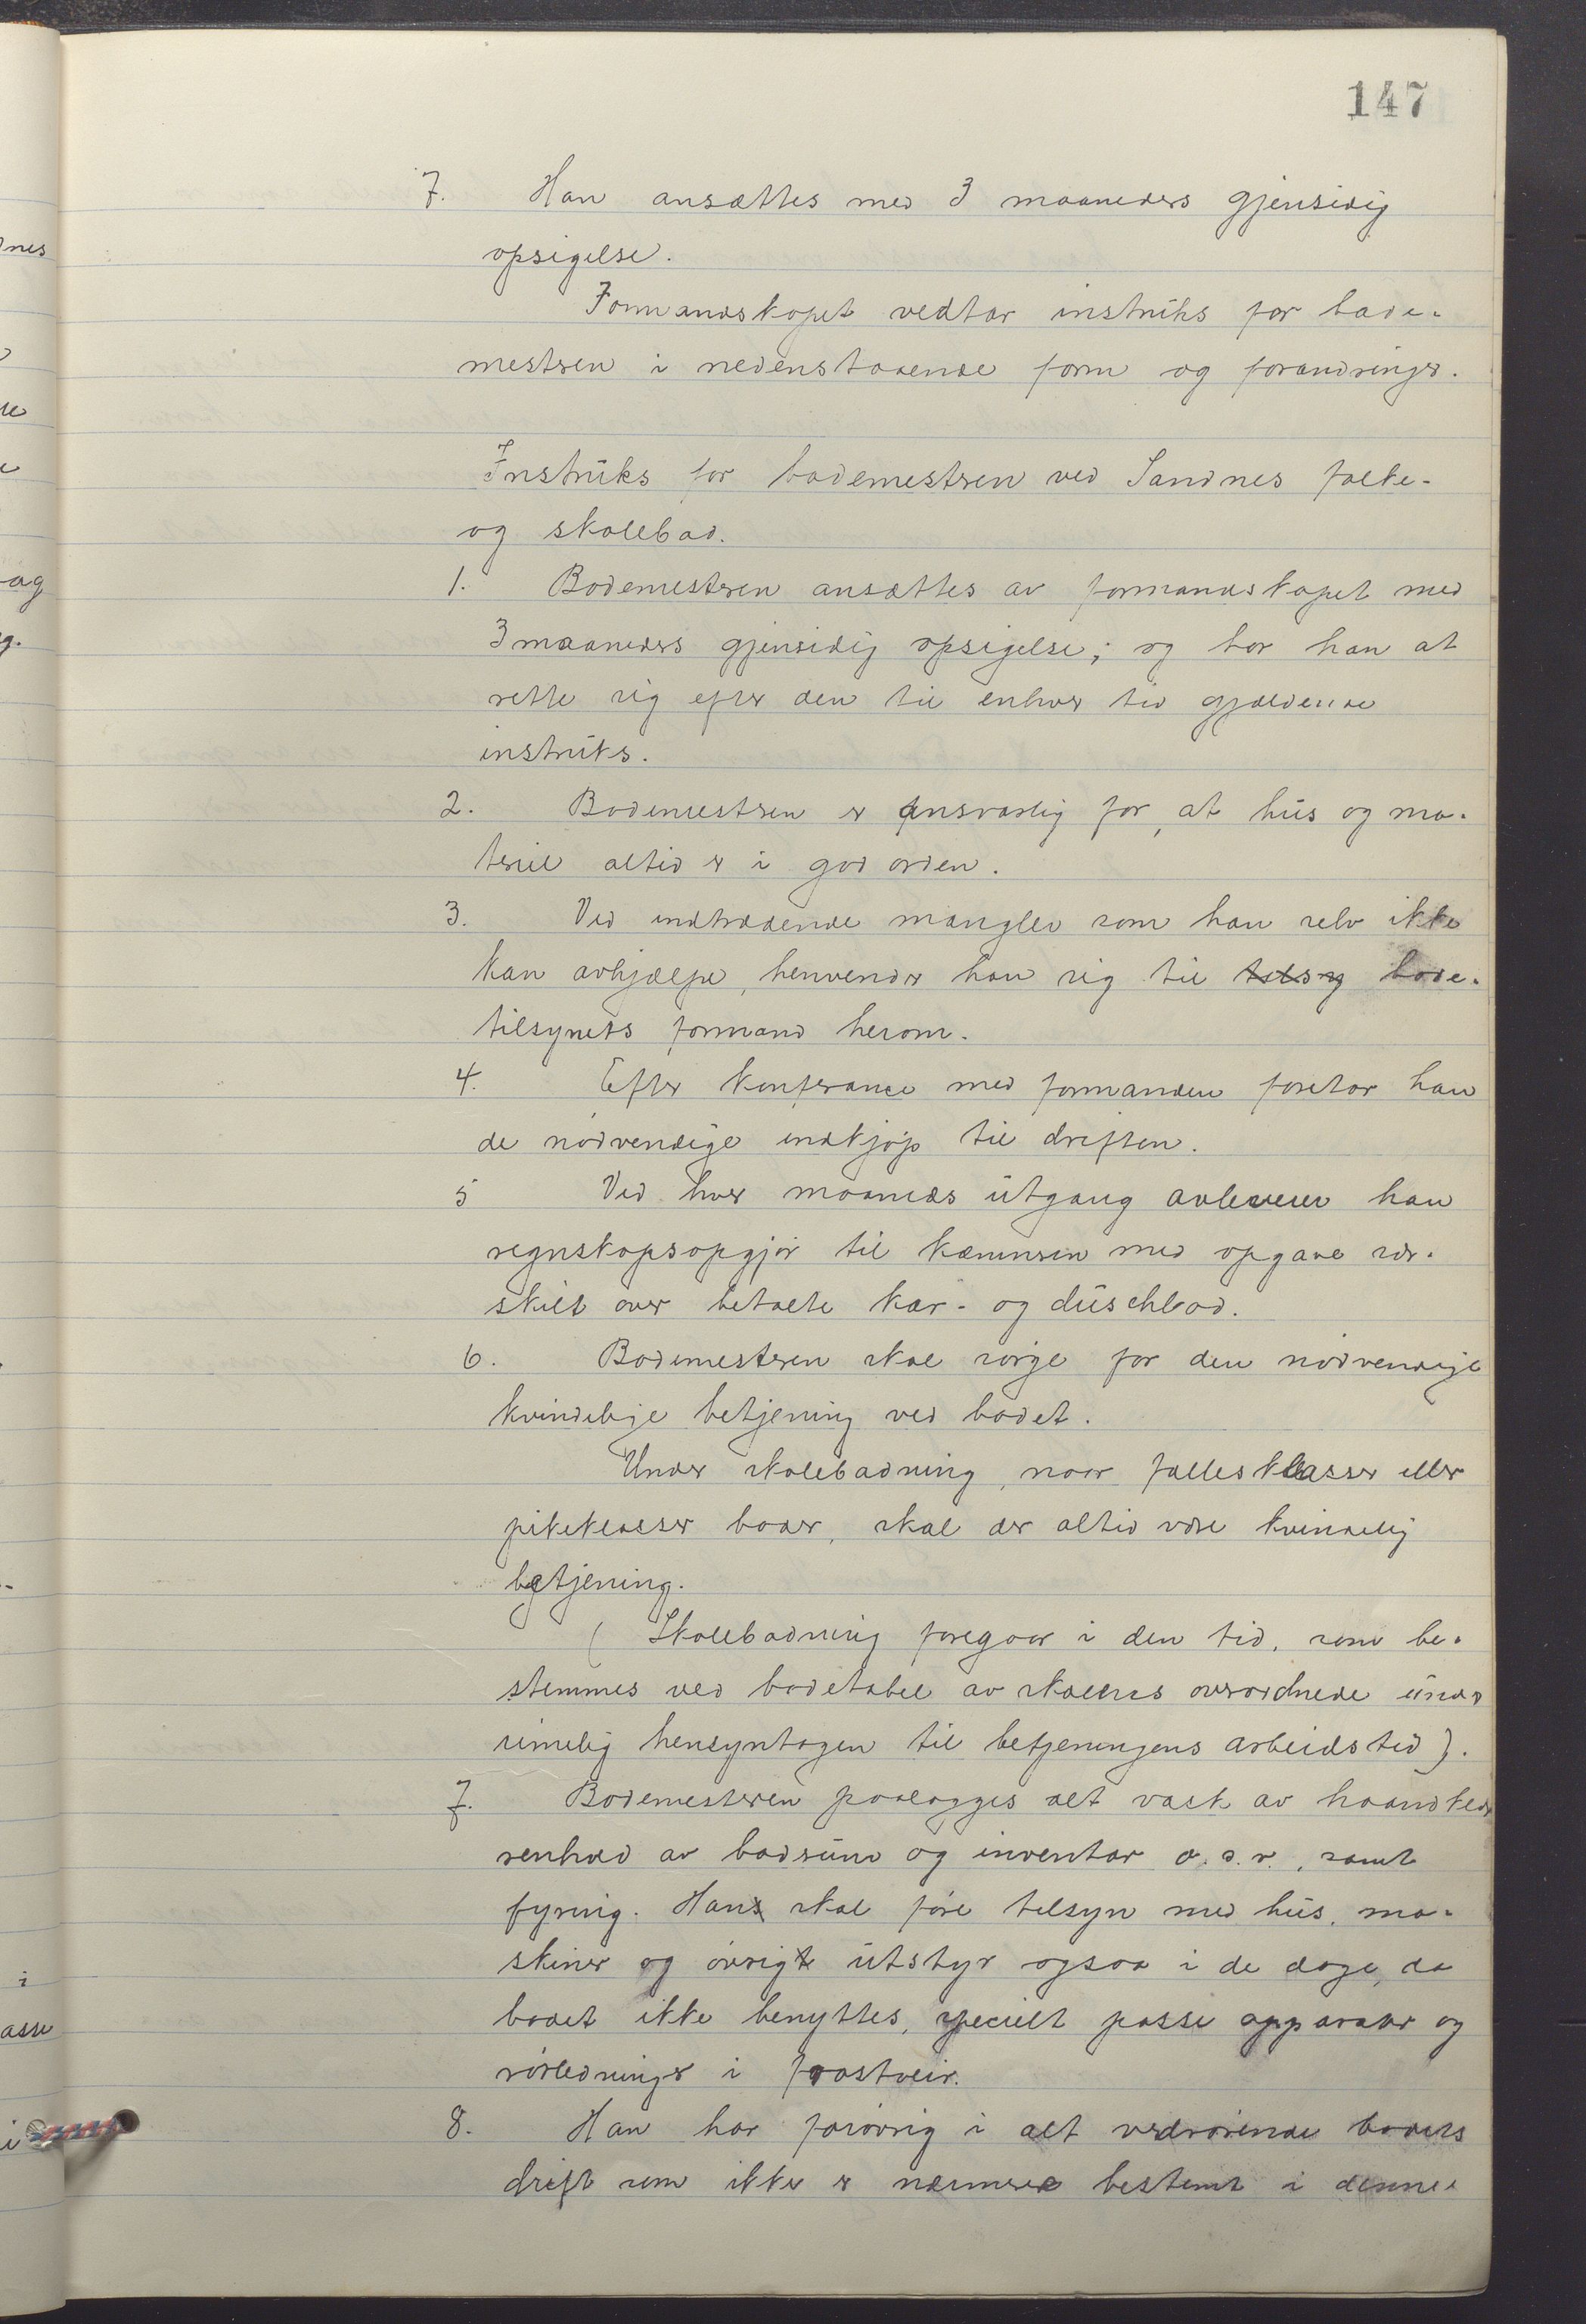 147
7. Han ansættes med 3 maaneders gjensidig
opsigelse.
Formandskapet vedtar instruks for bade-
mestren i nedenstaaende form og forandringer.
Instruks for bademestren ved Sandnes folke-
og skolebad.
1. Bademestren ansættes av formandskapet med
3 maaneders gjensidig opsigelse; og har han at
rette sig efter den til enhver tid gjældende
instruks.
2. Bademestren er ansvarlig for, at hus og ma-
teriel altid er i god orden.
3. Ved indtrædende mangler som han selv ikke
kan avhjælpe, henvender han sig til bade-
tilsynets formand herom.
4. Efter konferance med formanden foretar han
de nødvendige indkjøp til driften.
5 Ved hver maaneds utgang avleverer han
regnskapsopgjør til kæmneren med opgave sær-
skilt over betalte kar- og duschbad.
6. Bademesteren skal sørge for den nødvendige
kvindelige betjening ved badet.
Under skolebadning, naar fællesklasser eller
pikeklasser bader, skal der altid være kvindelig
betjening.
( Skolebadning foregaar i den tid, som be-
stemmes ved badetabel av skolens overordnede under
rimelig hensyntagen til betjeningens arbeidstid).
7. Bademesteren paalægges alt vask av haandklær
renhold av badsrum og inventar o.s.v., samt
fyring. Han skal føre tilsyn med hus, ma-
skiner og øvrigt utstyr ogsaa i de dage, da
badet ikke benyttes, specielt passe apparater og
rørledninger i frostveir.
8. Han har forøvrig i alt vedrørende badets
drift som ikke er nærmere bestemt i denne
nes
ag
g.
i
asse
i